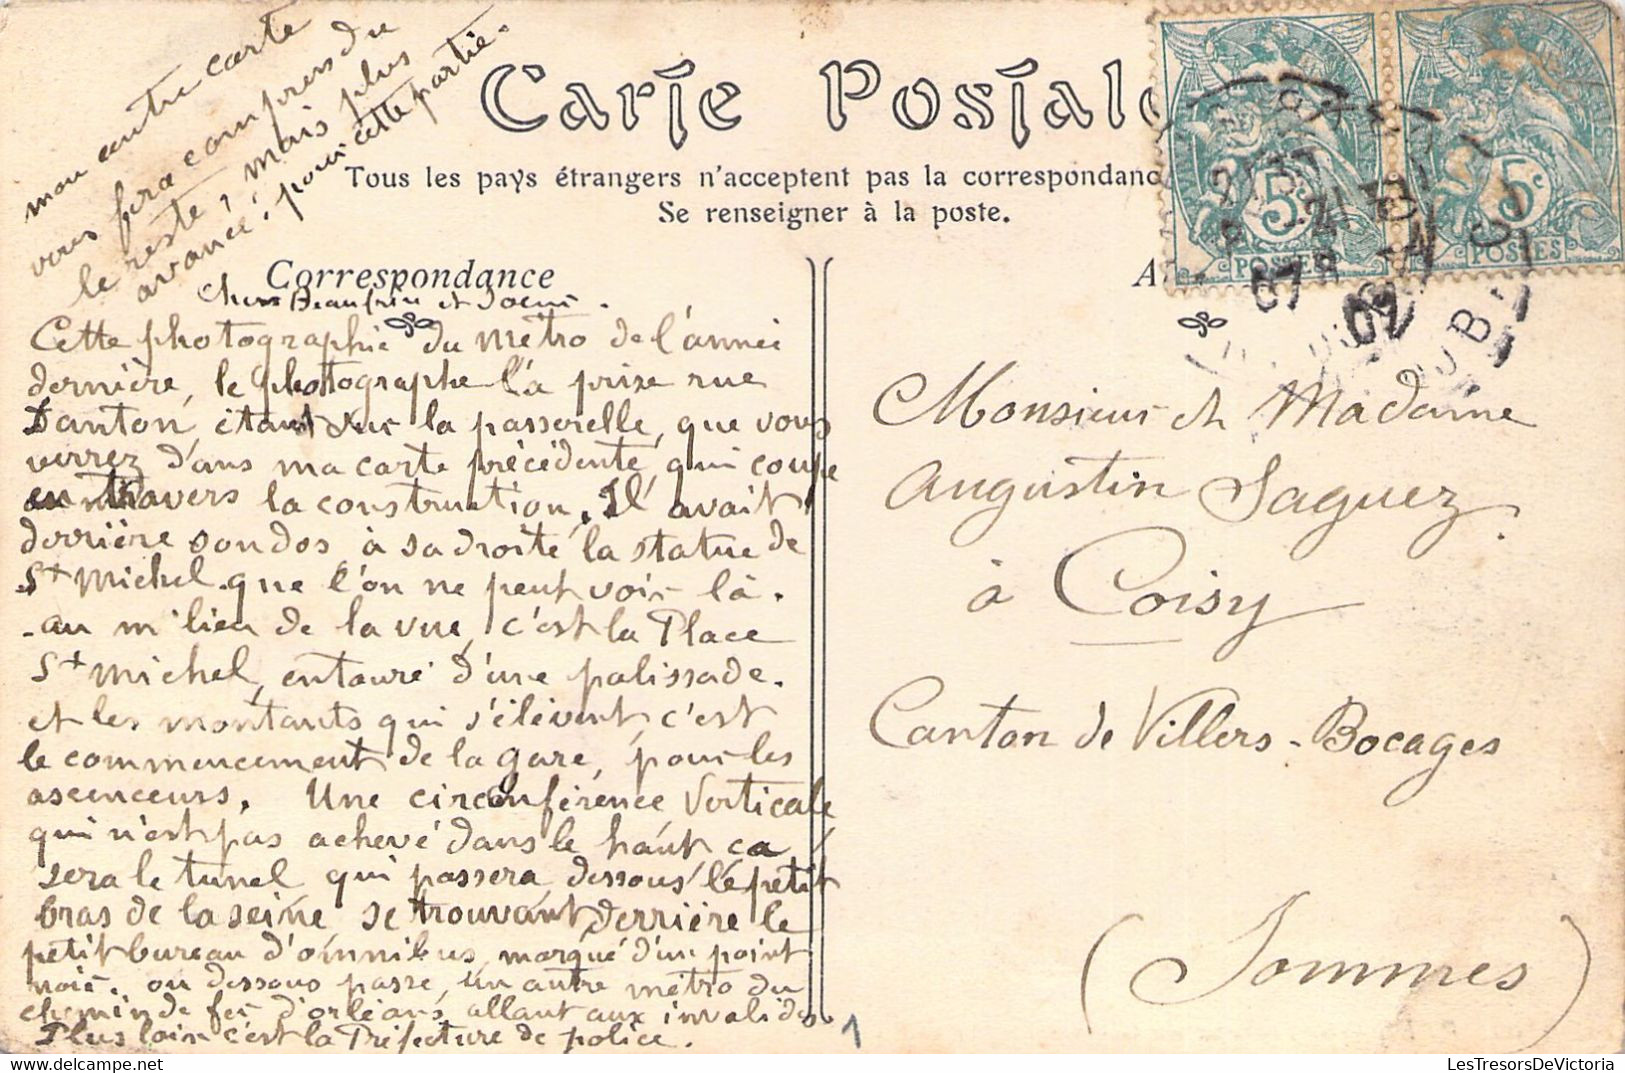 mon autre carte
vous fera comprendre
le reste, mais plus
avancé. pour cette partie.
Carte Postale
Tous les pays étrangers n'acceptent pas la correspondanc
Se renseigner à la poste.
Correspondance
A
Chers Beaufrère et Soeur.
Cette photographie du métro de l'année
dernière, le photographe l'a prise rue
Danton, étant sur la passerelle, que vous
verrez dans ma carte précédente, qui coupe
en travers la construction, Il avait
derrière son dos, à sa droite, la statue de
St Michel que l'on ne peut voir là.
- au milieu de la vue, c'est la Place
St Michel, entouré d'une palissade.
et les montants qui s'élèvent, c'est
le commencement de la gare, pour les
ascenceurs. Une circonférence, Verticale
qui n'est pas achevé dans le haut ca
sera le tunel qui passera dessous le petit
bras de la seine se trouvant derrière le
petit bureau d'omnibus, marqué d'un point
noir. ou dessous passe, un autre métro du
chemin de fer d'orléans, allant aux invalides
Plus loin c'est la Préfecture de police.
1
5c
POSTES
5c
POSTES
21
07
Monsieur et Madame
Augustin Saguez.
à Coisy
Canton de Villers-Bocages
(Sommes)
LesTresorsDeVictoria